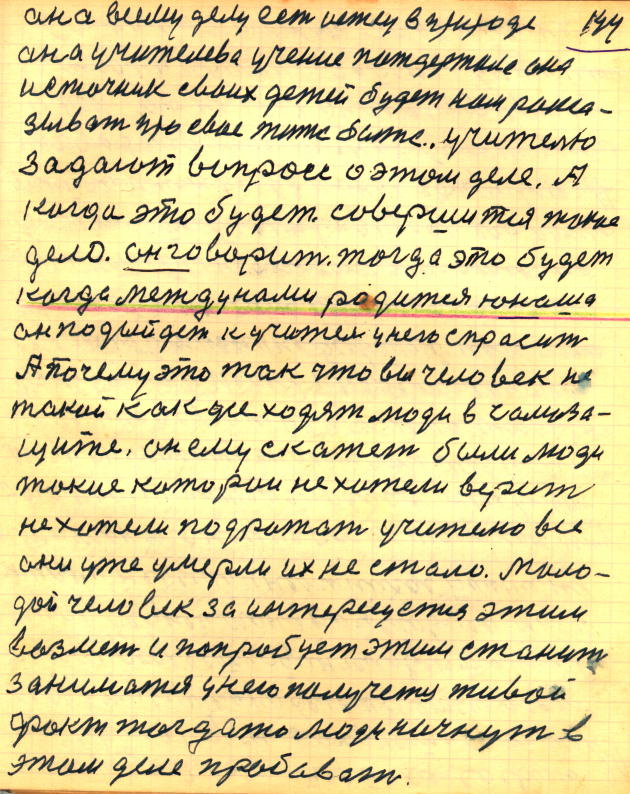 она всему делу ест истец в природе 144
она учителева учение потдержние она
источник своих детей будет нам раска-
зыват про свое житие бытие., учителю
задают вопросе о этом деле. А
когда это будет. совершится такое
дело. он говорит. тогда это будет
когда между нами родится юнаша
он подыйдет к учителю у него спросит
А почему это так что вы человек не
такой как все ходят люди в самоза-
щите. он ему скажет были люди
такие которои не хотели верит
не хотели подрожат учителю все
они уже умерли их не стало. Моло-
дой человек за интересуется этим
возмет и попробует этим станит
заниматя у него получется живой
факт тогда то люди начнут в
этом деле пробават.